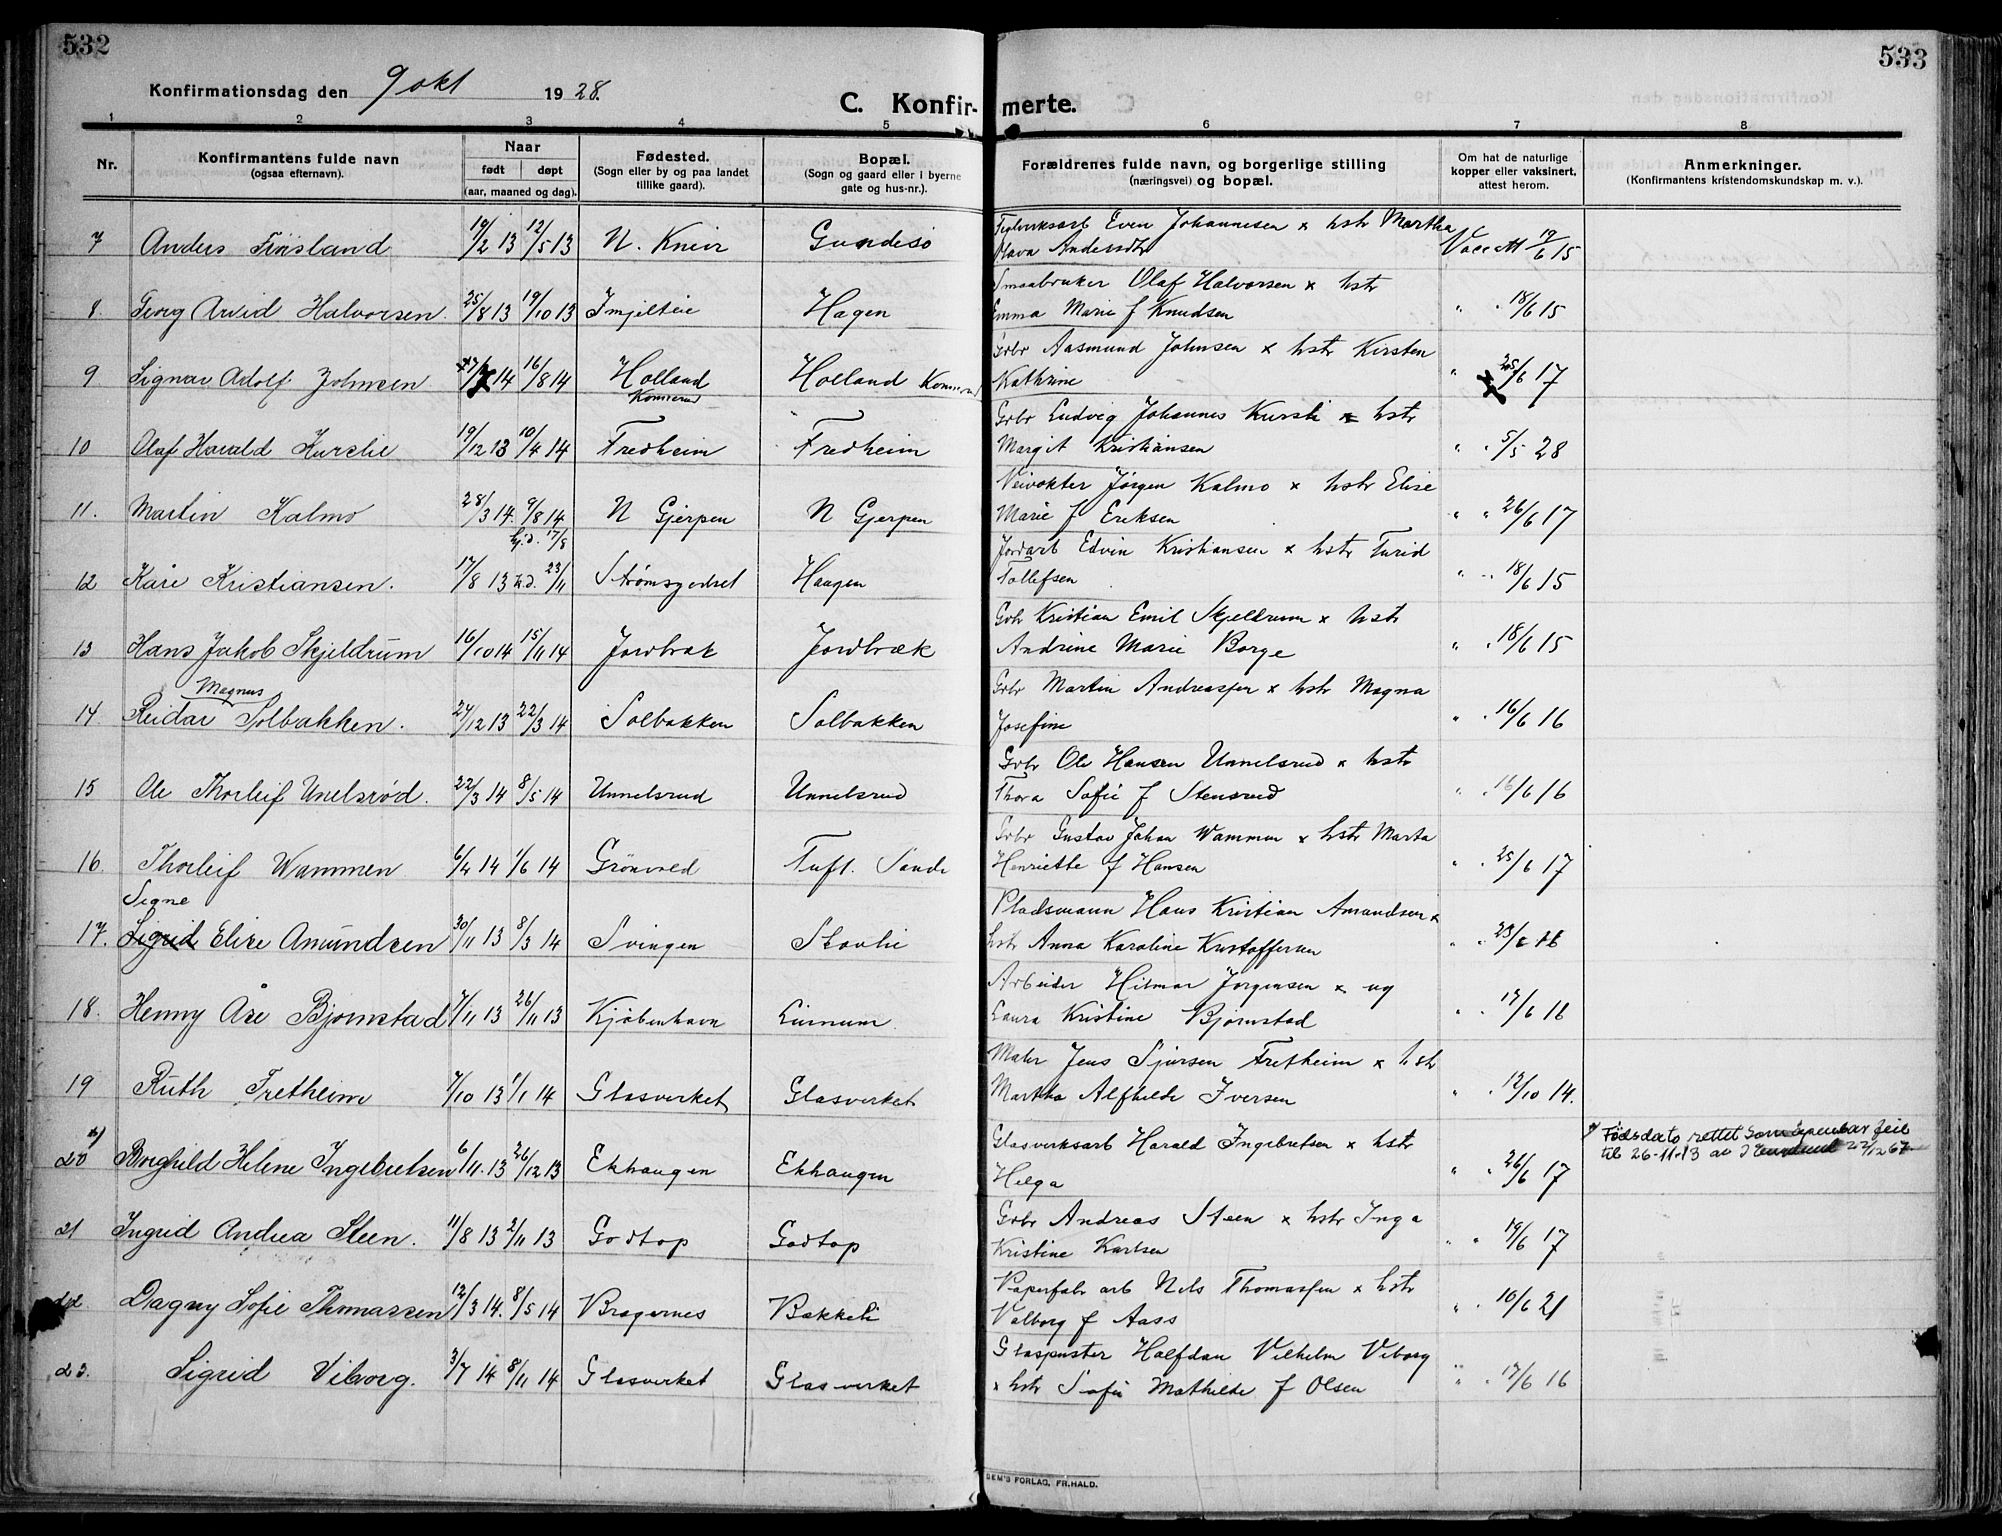 532
533
Konfirmationsdag den 9 okt 1928.
C. Konfir-merte.
1 2 3 4 5 6 7 8
Nr.
Konfirmantens fulde navn
(ogsaa efternavn).
Naar
født døpt
(aar, maaned og dag).
Fødested.
(Sogn eller by og paa landet
tillike gaard).
Bopæl.
(Sogn og gaard eller i byerne
gate og hus-nr.).
Forældrenes fulde navn, og borgerlige stilling
(næringsvei) og bopæl.
Om hat de naturlige
kopper eller vaksinert,
attest herom.
Anmerkninger.
(Konfirmantens kristendomskundskap m. v.).
7 Anders 19/2 13 12/5 13 N. Gundesø Even Johannesen x hstr Martha
Olava Andersdtr Vacc att 19/6 15
8. Georg Arvid Halvorsen 25/8 13 19/10 13 Hagen Smaabruker Olaf Halvorsen x hstr
Emma Marie f Knudsen " " 18/6 15
9 Signar Adolf Johnsen 14 16/8 14 Holland Holland Gbr Aasmund Johnsen x hstr Kirsten
Konnerud
Kathrine " 25/6 17
10 Olaf Harald 19/12 13 10/4 14 Fredheim Fredheim Gbr Ludvig Johannes x hstr
Margit Kristiansen " " 5/5 28
11. Martin Kalmo 28/3 14. 9/8 14 N Gjerpen N Gjerpen Veivokter Jørgen Kalmo x hstr Elise
hj.d. 17/8
Marie f Eriksen " " 26/6 17
12 Kåre Kristiansen. 17/8 13 23/11 Strømsgodset Haagen Jordarb Edvin Kristiansen x hstr Turid
Tollefsen " " 18/6 15
13 Hans Jakob Skjeldrum 16/10 14 15/11 14 Jordbræk Jordbræk Gbr Kristian Emil Skjeldrum x hstr
Andrine Marie Borge " " 18/6 15
Magnus
14. Reidar Solbakken. 27/12 13 22/3 14 Solbakken Solbakken Gbr Martin Andreassen x hstr Magna
Josefine " " 16/6 16
15 Ole Thorleif Unelsrød. 22/3 14 8/5 14 Unnelsrud Unnelsrud Gbr Ole Hansen Unnelsrud x hstr
Thora Sofie f Stensrud " " 16/6 16
16. Thorleif Wammen 6/4 14 1/6 14 Grønvold Tuft. Sande Gbr Gustav Johan Wammen x hstr Marta
Henriette f Hansen " " 25/6 17
Signe
17. Sigrid Elise Amundsen 30/11 13 8/3 14 Svingen Skovlie Pladsmann Hans Kristian Amandsen x
hstr Anna Karoline Kristoffersen " " 23/6 16
18. Henny Åse Bjørnstad 7/11 13 26/11 13 Kjøbenhavn Linnum Arbeider Hilmar Jørgensen x ug
Laura Kristine Bjørnstad " " 17/6 16
19 Ruth Fretheim 7/10 13 1/1 14 Glasverket Glasverket Maler Jens Sjursen Fretheim x hstr
Martha Alfhilde Iversen " " 12/10 14.
20 Borghild Helene Ingebretsen 6/11. 13 26/12 13 Ekhaugen Ekhaugen Glasverksarb Harald Ingebretsen x hstr
Helga " " 26/6 17
Fødsdato rettet som åpenbar feil
til 26-11-13 av 22/12 67
21 Ingrid Andrea Steen. 11/8 13 2/11 13 Godtop Godtop Gbr Andreas Steen x hstr Inga
Kristine Karlsen " " 19/6 17
22. Dagny Sofie Thomassen 12/3 14. 8/5 14 Bragernes Bakkeli Papirfabr arb Nils Thomassen x hstr
Valborg f Aass " " 16/6 21
23. Sigrid Viborg. 3/7 14 8/11 14 Glasverket Glasverket Glaspuster Halfdan Vilhelm Viborg
x hstr Sofie Mathilde f Olsen " " 17/6 16
DEM'S FORLAG, FR. HALD.